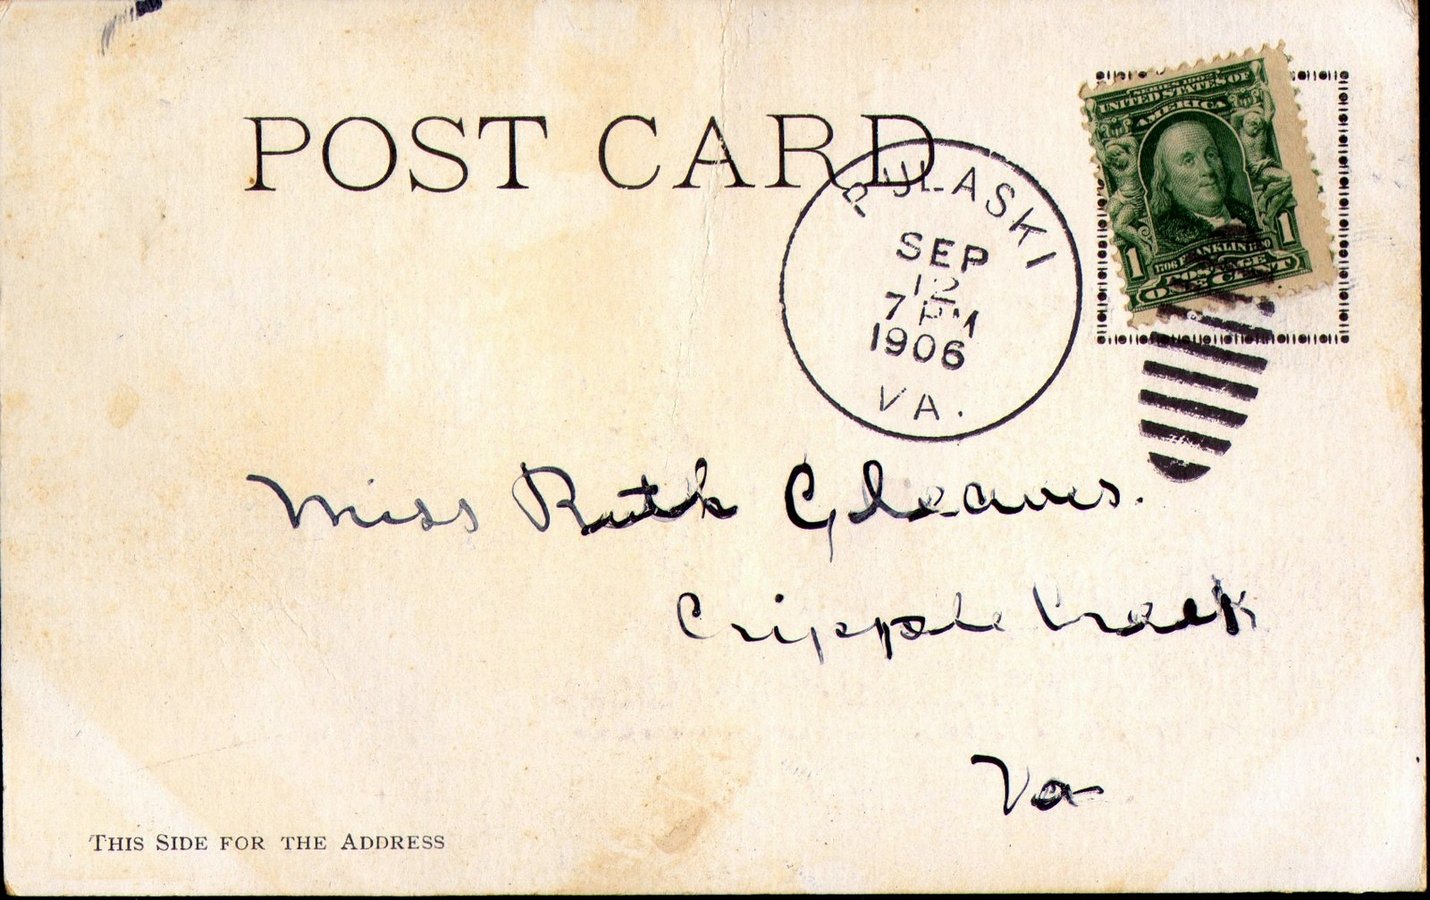 POST CARD
SERIES 1902
UNITED STATES OF
AMERICA
1 1
1706 FRANKLIN 1790
POSTAGE
ONE CENT
PULASKI
SEP
12
7 PM
1906
VA.
Miss Ruth Gleaves.
Cripple Creek
Va
THIS SIDE FOR THE ADDRESS